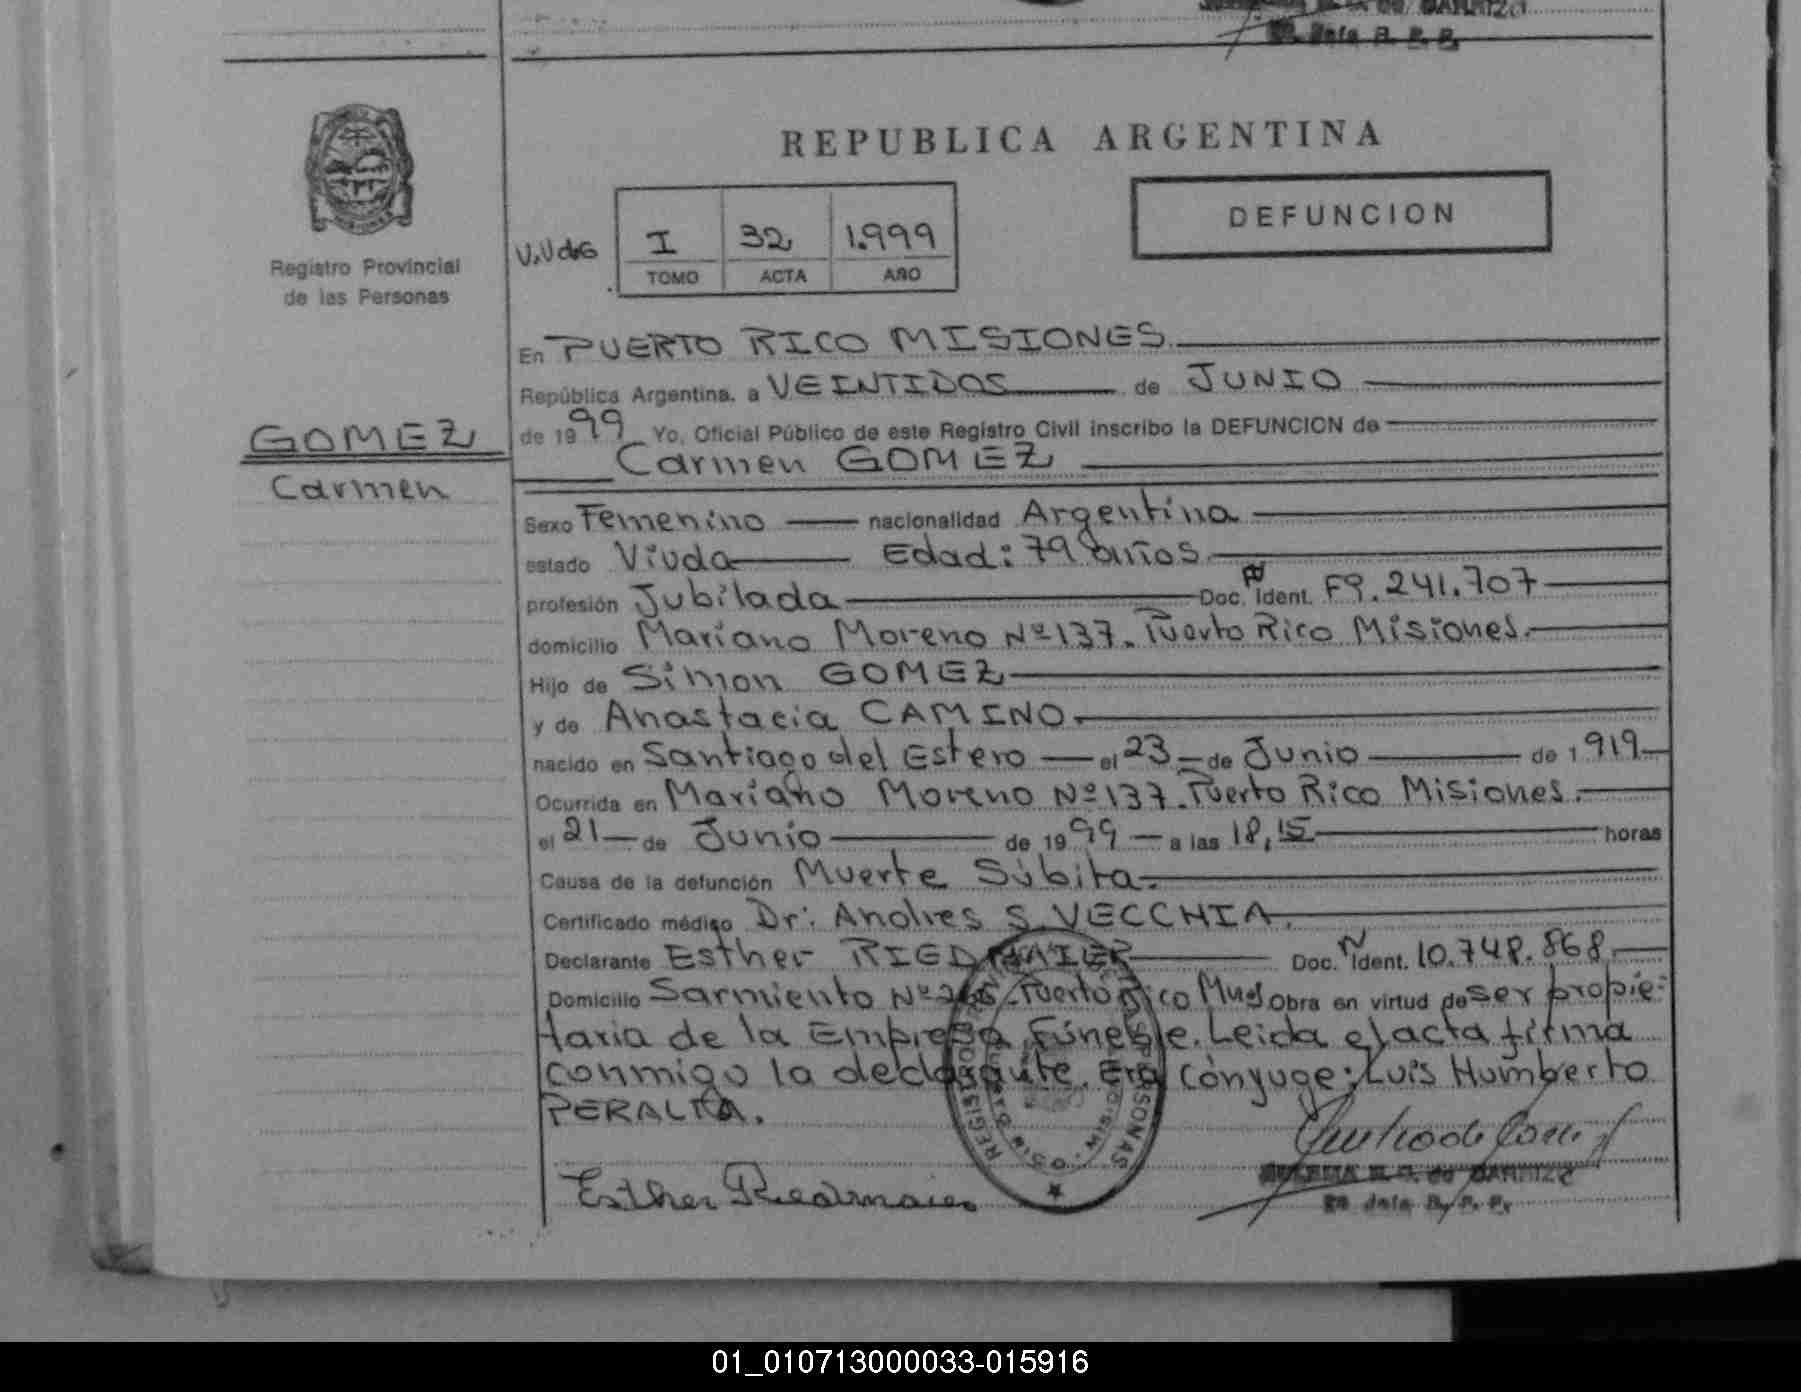 REPUBLICA ARGENTINA
DEFUNCION
Registro Provincial
de las Personas
I 32 1.999
TOMO ACTA AÑO
En PUERTO RICO MISIONES.
República Argentina, a VEINTIDOS de JUNIO
de 1999 Yo, Oficial Público de este Registro Civil inscribo la DEFUNCION de
GOMEZ
Carmen GOMEZ
Carmen
Sexo Femenino nacionalidad Argentina
estado Viuda Edad: 79 años
profesión Jubilada Doc. Ident. F9.241.707
domicilio Mariano Moreno Nº 137. Puerto Rico Misiones.
Hijo de Simon GOMEZ
y de Anastacia CAMINO.
nacido en Santiago del Estero el 23 de Junio de 1919
Ocurrida en Mariano Moreno Nº 137. Puerto Rico Misiones.
el 21 de Junio de 1999 a las 18,15 horas
Causa de la defunción Muerte Súbita.
Certificado médico Dr: Andres S. VECCHIA.
Declarante Esther RIEDMAIER Doc. Ident. 10.748.868
Domicilio Sarmiento Nº Puerto Rico Mnes Obra en virtud de ser propie-
taria de la Empresa Fúnebre. Leida el acta firma
conmigo la declarante. Era cónyuge: Luis Humberto
PERALTA.
REGISTRO PERSONAS
Esther Riedmaier
de CARRIZO
01_010713000033-015916